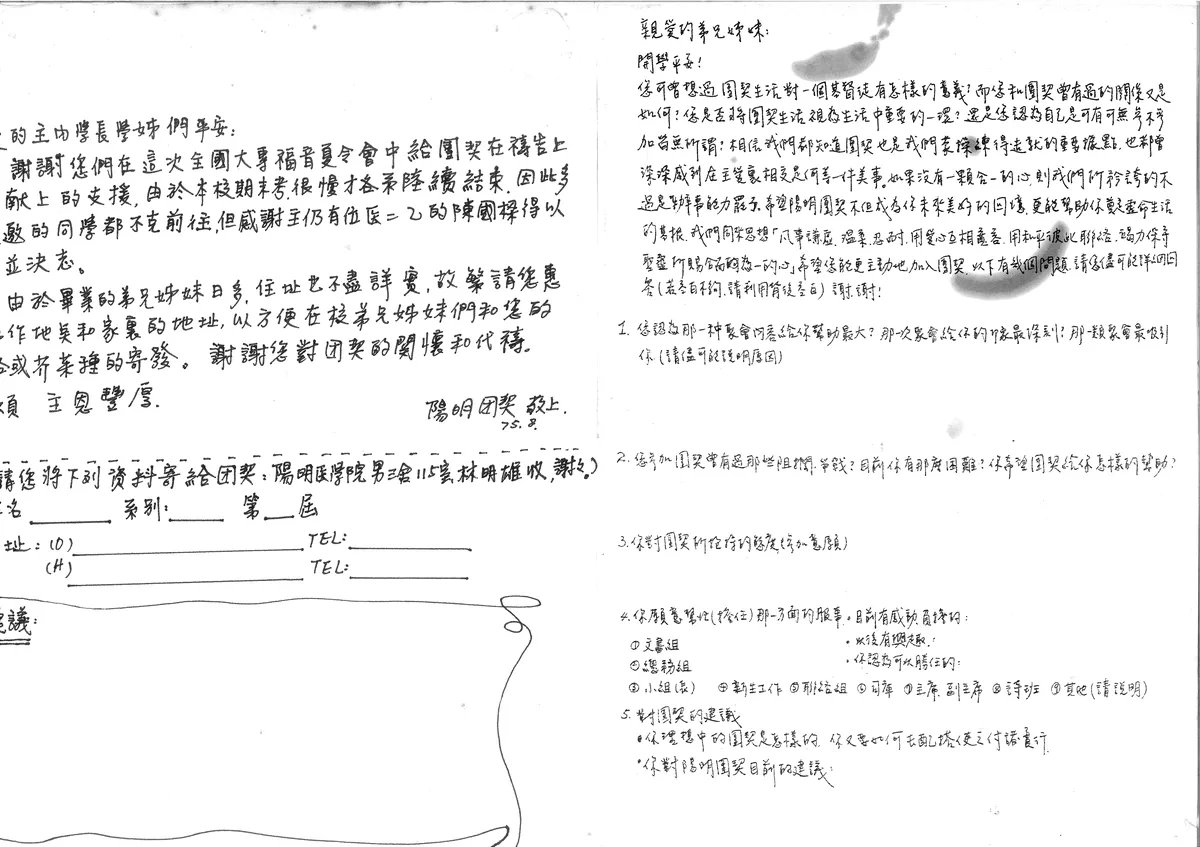 的主內學長學姊們平安:
謝謝您們在這次全國大專福音夏令會中給團契在禱告上
献上的支援,由於本校期末考很慢才各系陸續結束,因此多
邀的同學都不克前往,但感謝主仍有位医=乙的陳國樑得以
並決志。
由於畢業的弟兄姊妹日多,住址也不盡詳實,故繁請您惠
作地點和家裏的地址,以方便在校弟兄姊妹們和您的
或芥菜種的寄發。謝謝您對团契的関懷和代禱。
頌 主恩豐厚.
陽明团契 敬上.
75.8.
請您將下列資料寄給团契:陽明医學院男三舍115室林明雄收,謝々。)
名 系別: 第 屆
址:(O) TEL:
(H) TEL:
議:
親愛的弟兄姊妹:
開學平安!
您可曾想過團契生活對一個基督徒有怎樣的意義?而您和團契曾有過的關係又是
如何?您是否將團契生活視為生活中重要的一環?還是您認為自己是可有可無參不參
加皆無所謂?相信我們都知道團契也是我們裝操練得造就的重要據點,也都曾
深深感到在主愛裏相交是何等一件美事。如果沒有一顆合一的心,則我們所誇的不
過是辦事能力罷了.希望陽明團契不但成為你未來美好的回憶,更能幫助你奠定靈命生活
的基根.我們同來思想「凡事謙虛、溫柔、忍耐,用愛心互相寬容,用和平彼此聯絡,竭力保守
聖靈所賜合而為一的心」希望您能更主動地加入團契.以下有幾個問題,請您儘可能詳細回
答(若空白不夠,請利用背後空白)謝謝!
1. 您認為那一种聚會內容給你幫助最大?那一次聚會給你的印象最深刻?那一類聚會最吸引
你(請儘可能說明原因)
2. 您參加團契曾有過那些阻攔、爭戰?目前你有那麼困難?你希望團契給你怎樣的幫助?
3. 你對團契所抱持的態度(參加意願)
4. 你願意幫忙(擔任)那一方面的服事.・目前有感動負擔的:
①文書組 ・以後有興趣:
②總務組 ・你認為可以勝任的:
③小組(長) ④新生工作 ⑤聯絡組 ⑥司庫 ⑦主席、副主席 ⑧詩班 ⑨其他(請說明)
5. 對團契的建議
・你理想中的團契是怎樣的.你又要如何去配搭使之付諸實行
・你對陽明團契目前的建議: